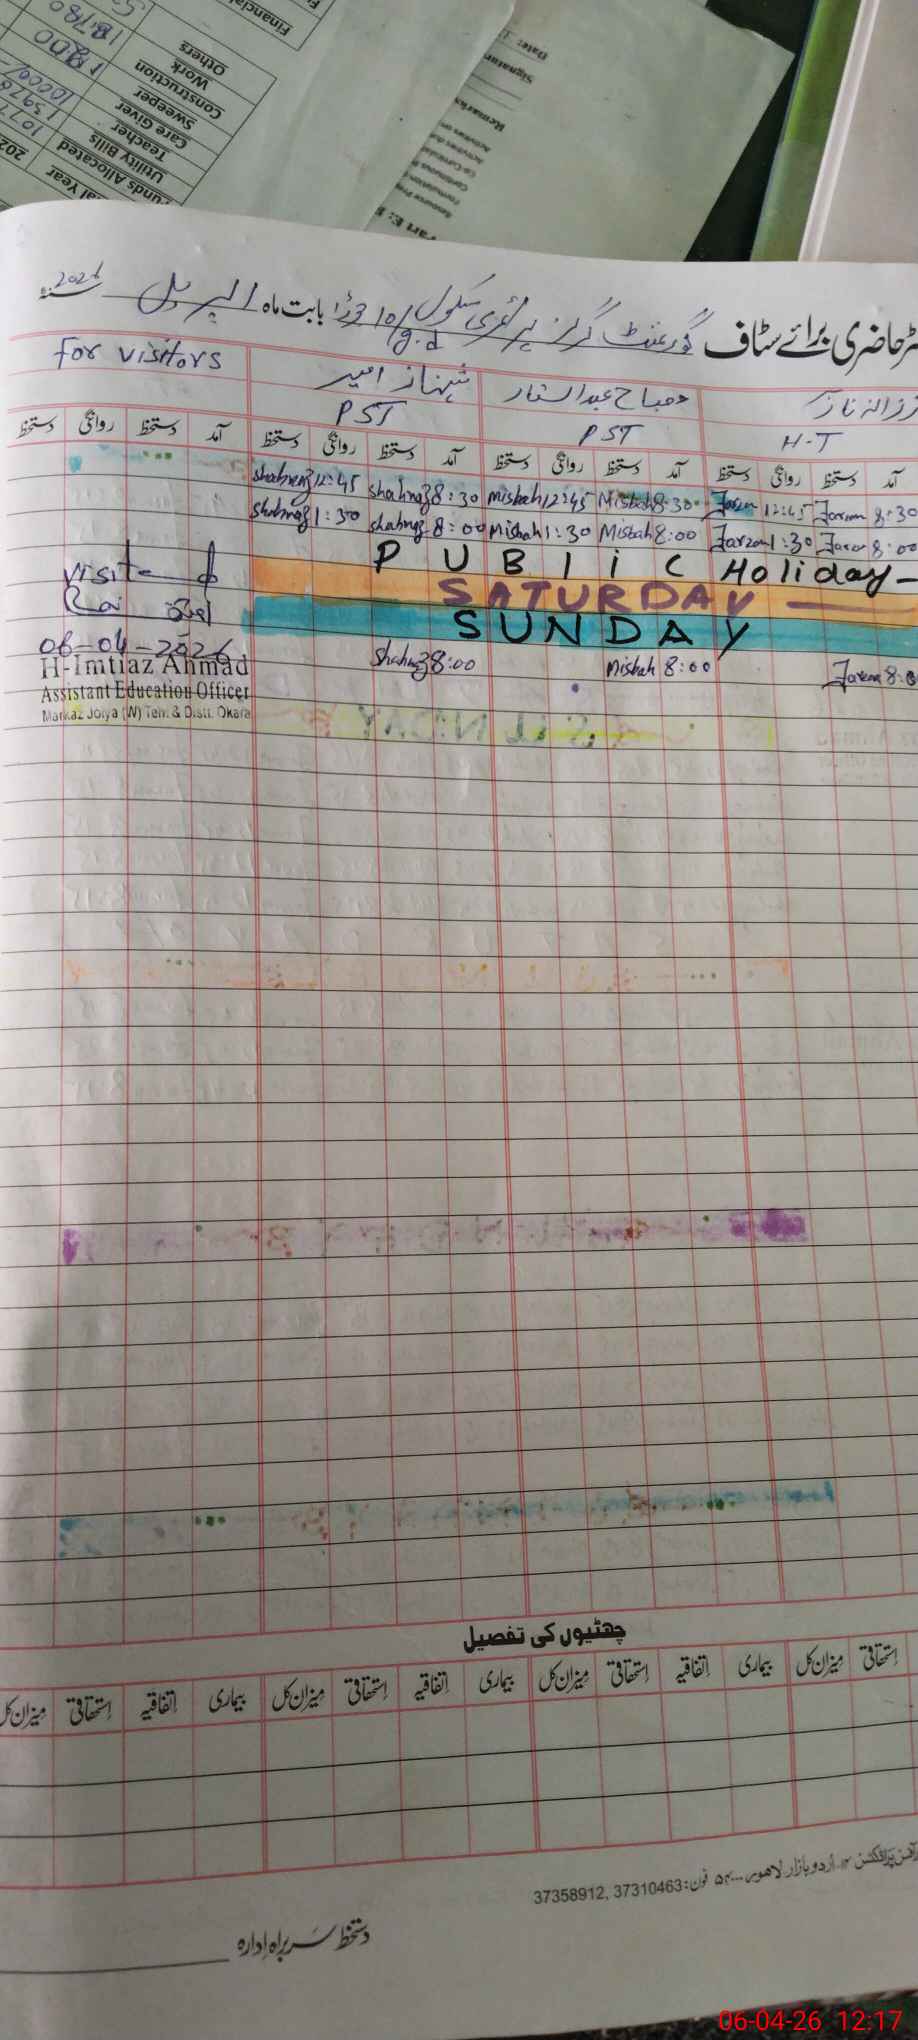 Financial
Others
Work
Construction
Sweeper
Care Giver
Teacher
Utility Bills
Funds Allocated
18780
Date:
Signature
Remarks
Part E:
ٹر حاضری برائے سٹاف گورنمنٹ گرلز پرائمری سکول 10/g.d بابت ماہ اپریل سنہ 2026
For visitors
شہناز امیر
مصباح عبدالستار
فرزانہ ناز
PST
PST
H-T
آمد دستخط روانگی دستخط آمد دستخط روانگی دستخط آمد دستخط روانگی دستخط آمد دستخط روانگی دستخط
Shahnaz 12:45 Shahnaz 8:30 Misbah 12:45 Misbah 8:30 Farzan 12:45 Farzan 8:30
Shahnaz 1:30 Shahnaz 8:00 Misbah 1:30 Misbah 8:00 Farzan 1:30 Farzan 8:00
PUBliC Holiday
SATURDAY
SUNDAY
Shahnaz 8:00 Misbah 8:00 Farzan 8:0
visit
06-04-2026
H-Imtiaz Ahmad
Assistant Education Officer
Markaz Joiya (W) Teh. & Distt. Okara
چھٹیوں کی تفصیل
استحقاقی میزان کل بیماری اتفاقیہ استحقاقی میزان کل بیماری اتفاقیہ استحقاقی میزان کل بیماری اتفاقیہ استحقاقی میزان کل
اردو بازار لاہور فون: 37310463, 37358912
دستخط سربراہ ادارہ
06-04-26 12:17